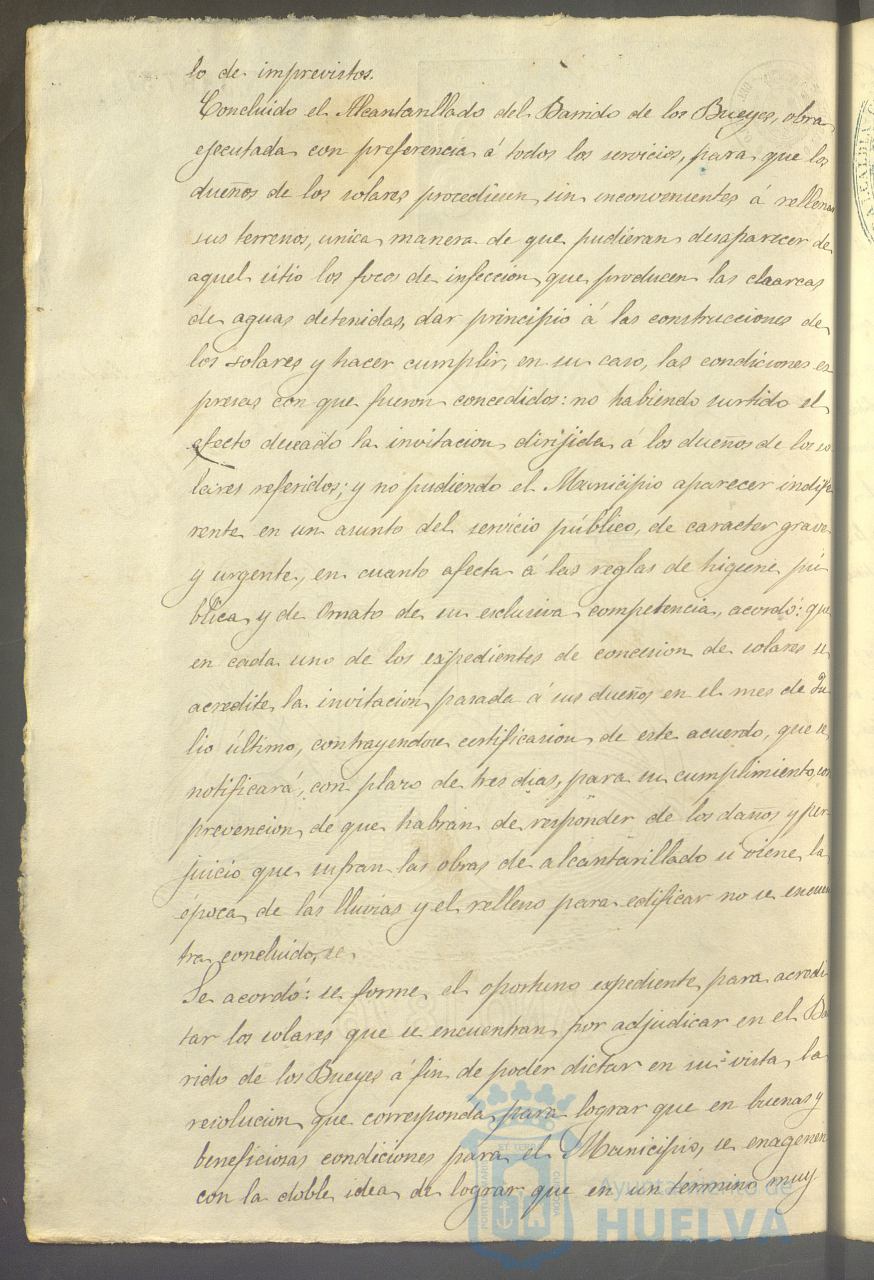 lo de imprevistos.
Concluido el Alcantarillado del Barrido de los Bueyes, obra
ejecutada con preferencia á todos los servicios, para que los
dueños de los solares procediesen sin inconvenientes á rellenar
sus terrenos, unica manera de que pudieran desaparecer de
aquel sitio los focos de infeccion que producen las charcas
de aguas detenidas, dar principio á las construcciones de
los solares y hacer cumplir, en su caso, las condiciones ex
presas con que fueron concedidos: no habiendo surtido el
efecto deseado la invitacion dirijida á los dueños de los so
lares referidos; y no pudiendo el Municipio aparecer indife
rente en un asunto del servicio público, de caracter grave
y urgente, en cuanto afecta á las reglas de higiene pú
blica y de Ornato de su esclusiva competencia, acordó: que
en cada uno de los expedientes de concesion de solares se
acredite la invitacion pasada á sus dueños en el mes de Ju
lio último, contrayendose certificasion de este acuerdo, que se
notificará, con plazo de tres dias, para su cumplimiento, con
prevencion de que habrán de responder de los daños y per-
juicio que sufran las obras de alcantarillado si viene la
época de las lluvias y el relleno para edificar no se encuen
tra concluido, se
Se acordó: se forme el oportuno expediente para acredi
tar los solares que se encuentran por adjudicar en el Ba
rrido de los Bueyes á fin de poder dictar en su vista la
resolucion que corresponda para lograr que en buenas y
beneficiosas condiciones para el Municipio, se enagenen
con la doble idea de lograr que en un término muy
Ayuntamiento de
HUELVA